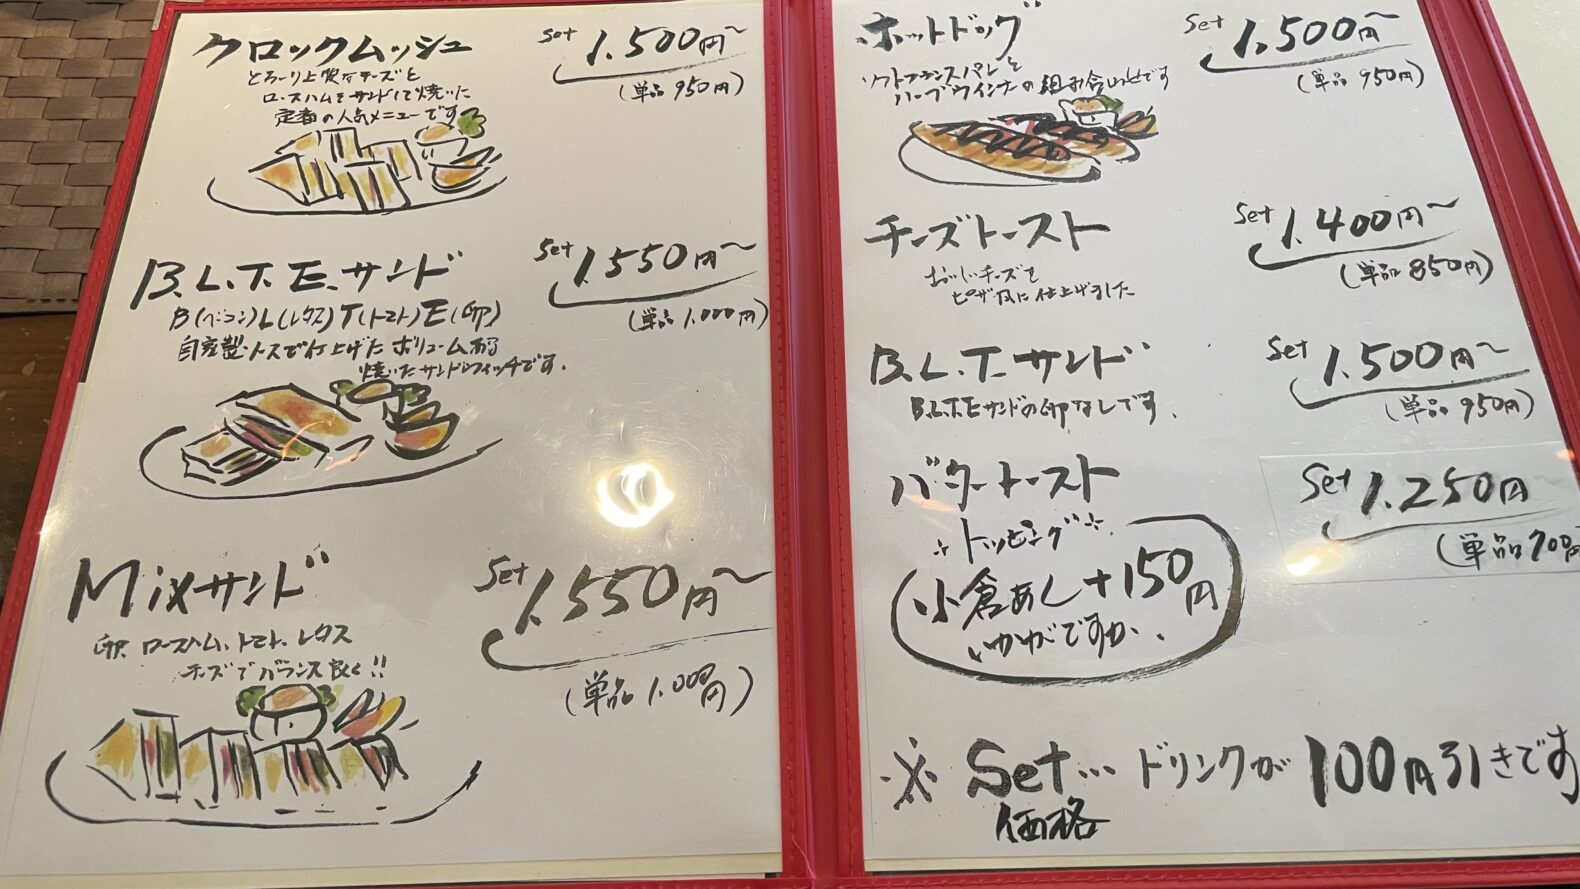 クロックムッシュ
Set 1.500円〜
とろーり上質なチーズと
ロースハムをサンドして焼いた
定番の人気メニューです
(単品 950円)
B.L.T.E.サンド
Set 1.550円〜
B(ベーコン)L(レタス)T(トマト)E(卵)
(単品 1.000円)
自家製ソースで仕上げたボリュームある
焼いたサンドウィッチです.
Mixサンド
Set 1.550円〜
卵、ロースハム、トマト、レタス
チーズでバランス良く!!
(単品 1.000円)
ホットドッグ
Set 1.500円〜
ソフトフランスパンと
ハーブウインナーの組み合わせです
(単品 950円)
チーズトースト
Set 1.400円〜
おいしいチーズを
ピザ風に仕上げました
(単品 850円)
B.L.T.サンド
Set 1.500円〜
B.L.T.Eサンドの卵なしです.
(単品 950円)
バタートースト
Set 1.250円
(単品 700円
トッピング
小倉あん+150円
いかがですか..
※ Set… ドリンクが 100円引きです
価格